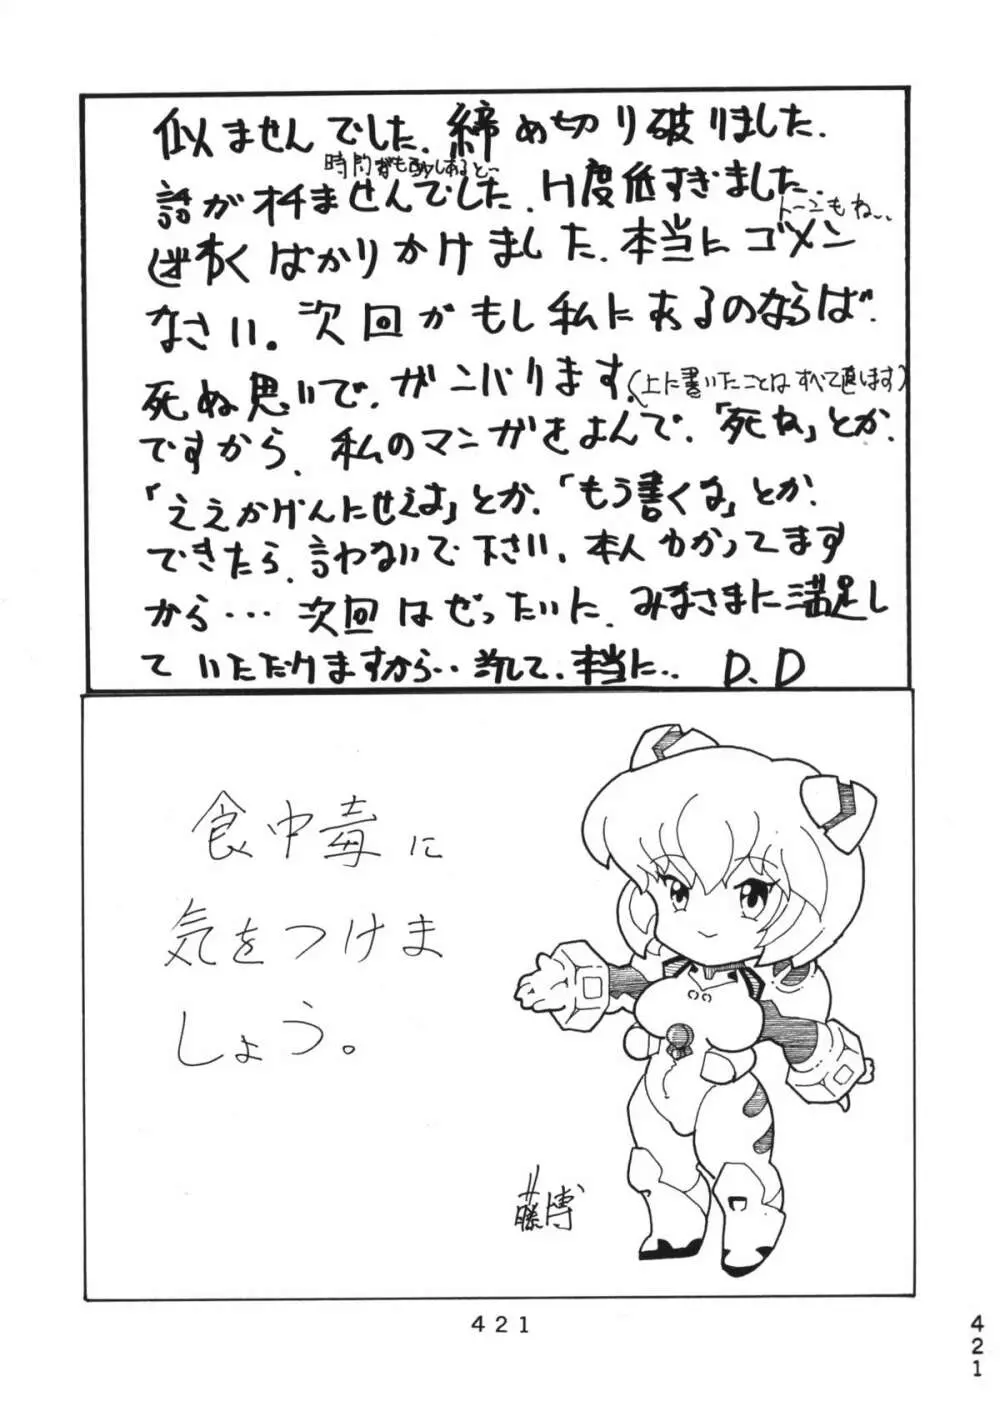 似ませんでした.締め切り破りました.
時間
話がオチませんでした.H度低すぎました.
トーンもね..
迷わくばかりかけました.本当にゴメン
なさい。次回がもし私にあるのならば.
死ぬ思いで.ガンバります.(上に書いたことはすべて直します)
ですから.私のマンガをよんで.「死ね」とか.
「ええかげんにせえよ」とか.「もう書くな」とか.
できたら.言わないで下さい.本人わかってます
から・・・次回はぜったいに.みなさまに満足し
ていただけますから・・ 本当に.. D.D
食中毒に
気をつけま
しょう。
藤博
421
421